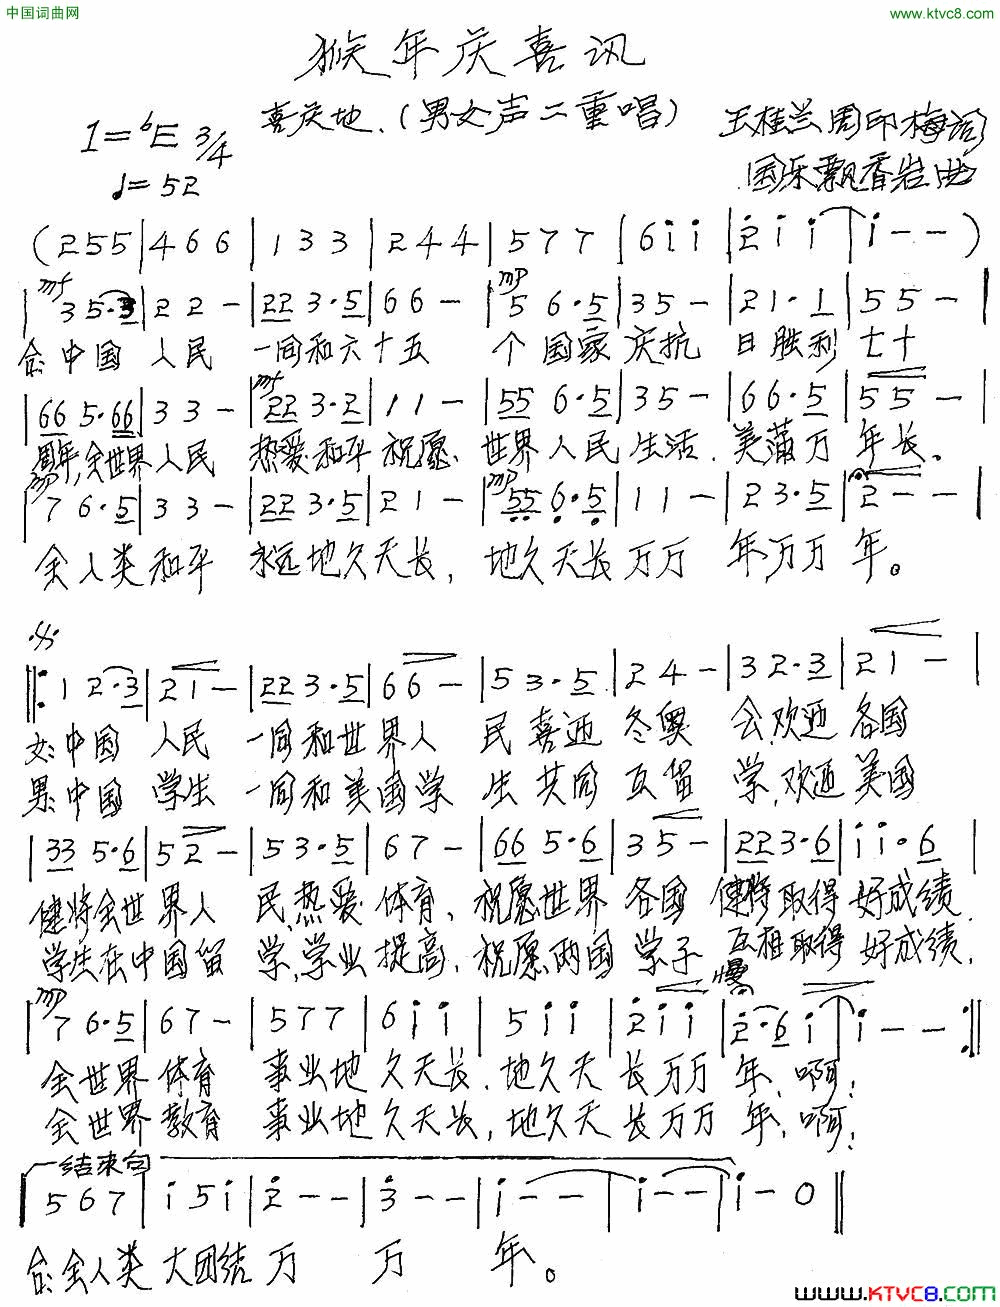 中国词曲网
www.ktvc8.com
猴年庆喜讯
喜庆地.(男女声二重唱)
王桂兰周印梅词
1=♭E 3/4
♩=52
国乐飘香岩曲
(255|466|133|244|577|6i̇i̇|2̇i̇i̇|i̇--)
mf mp
|35·3|22-|22 3·5|66-|56·5|35-|21·1|55-|
合:中国 人民 一同和六十五 个国家庆抗 日胜利七十
mf
|66 5·66|33-|22 3·2|11-|55 6·5|35-|66·5|55-|
周年,全世界人民 热爱和平祝愿. 世界人民生活.美满万年长.
mp mp
|76·5|33-|22 3·5|21-|55 6·5|11-|23·5|2--|
全人类和平 永远地久天长, 地久天长万万年,万万年。
|:12·3|21-|22 3·5|66-|53·5|24-|32·3|21-|
女:中国 人民 一同和世界人 民喜迎冬奥会,欢迎各国
男:中国 学生 一同和美国学 生共同互留学,欢迎美国
|33 5·6|52-|53·5|67-|66 5·6|35-|22 3·6|i̇i̇·6|
健将全世界人 民,热爱体育,祝愿世界各国健将取得好成绩.
学生在中国留 学,学业提高.祝愿两国学子互相取得好成绩.
mp 慢
|76·5|67-|577|6i̇i̇|5i̇i̇|2̇i̇i̇|2̇·6i̇|i̇--:‖
全世界体育 事业地久天长.地久天长万万年,啊;
全世界教育 事业地久天长,地久天长万万年,啊;
结束句
567|i̇5i̇|2̇--|3̇--|i̇--|i̇--|i̇-0‖
合:全人类大团结万 万 年。
www.KTVC8.com